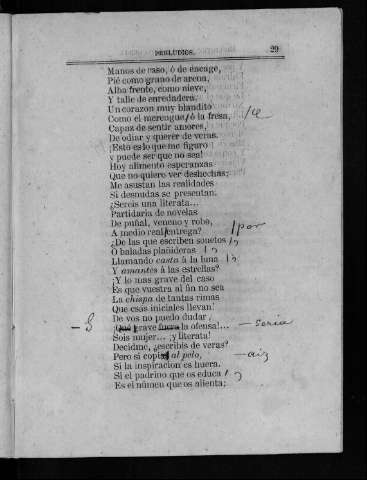 PRELUDIOS. 29
Manos de raso, ó de encage,
Pié como grano de arena,
Alba frente, como nieve,
Y talle de enredadera.
Un corazon muy blandito
Como el merengue, ó la fresa,
Capaz de sentir amores,
De odiar y querer de veras.
¡Esto es lo que me figuro
y puede ser que no sea!
Hoy alimento esperanzas
Que no quiero ver deshechas;
Me asustan las realidades
Si desnudas se presentan.
¿Sereis una literata...
Partidaria de novelas
De puñal, veneno y robo,
A medio real entrega? por
¿De las que escriben sonetos
O baladas plañideras
Llamando casta á la luna
Y amantes á las estrellas?
¡Y lo mas grave del caso
Es que vuestra al fin no sea
La chispa de tantas rimas
Que esas iniciales llevan!
De vos no puedo dudar
¡Qué grave fuera la ofensa!... seria
Sois mujer... ¡y literata!
Decidme, ¿escribis de veras?
Pero si copiais al pelo, aiz
Si la inspiracion es huera.
Si el padrino que os educa
Es el númen que os alienta;